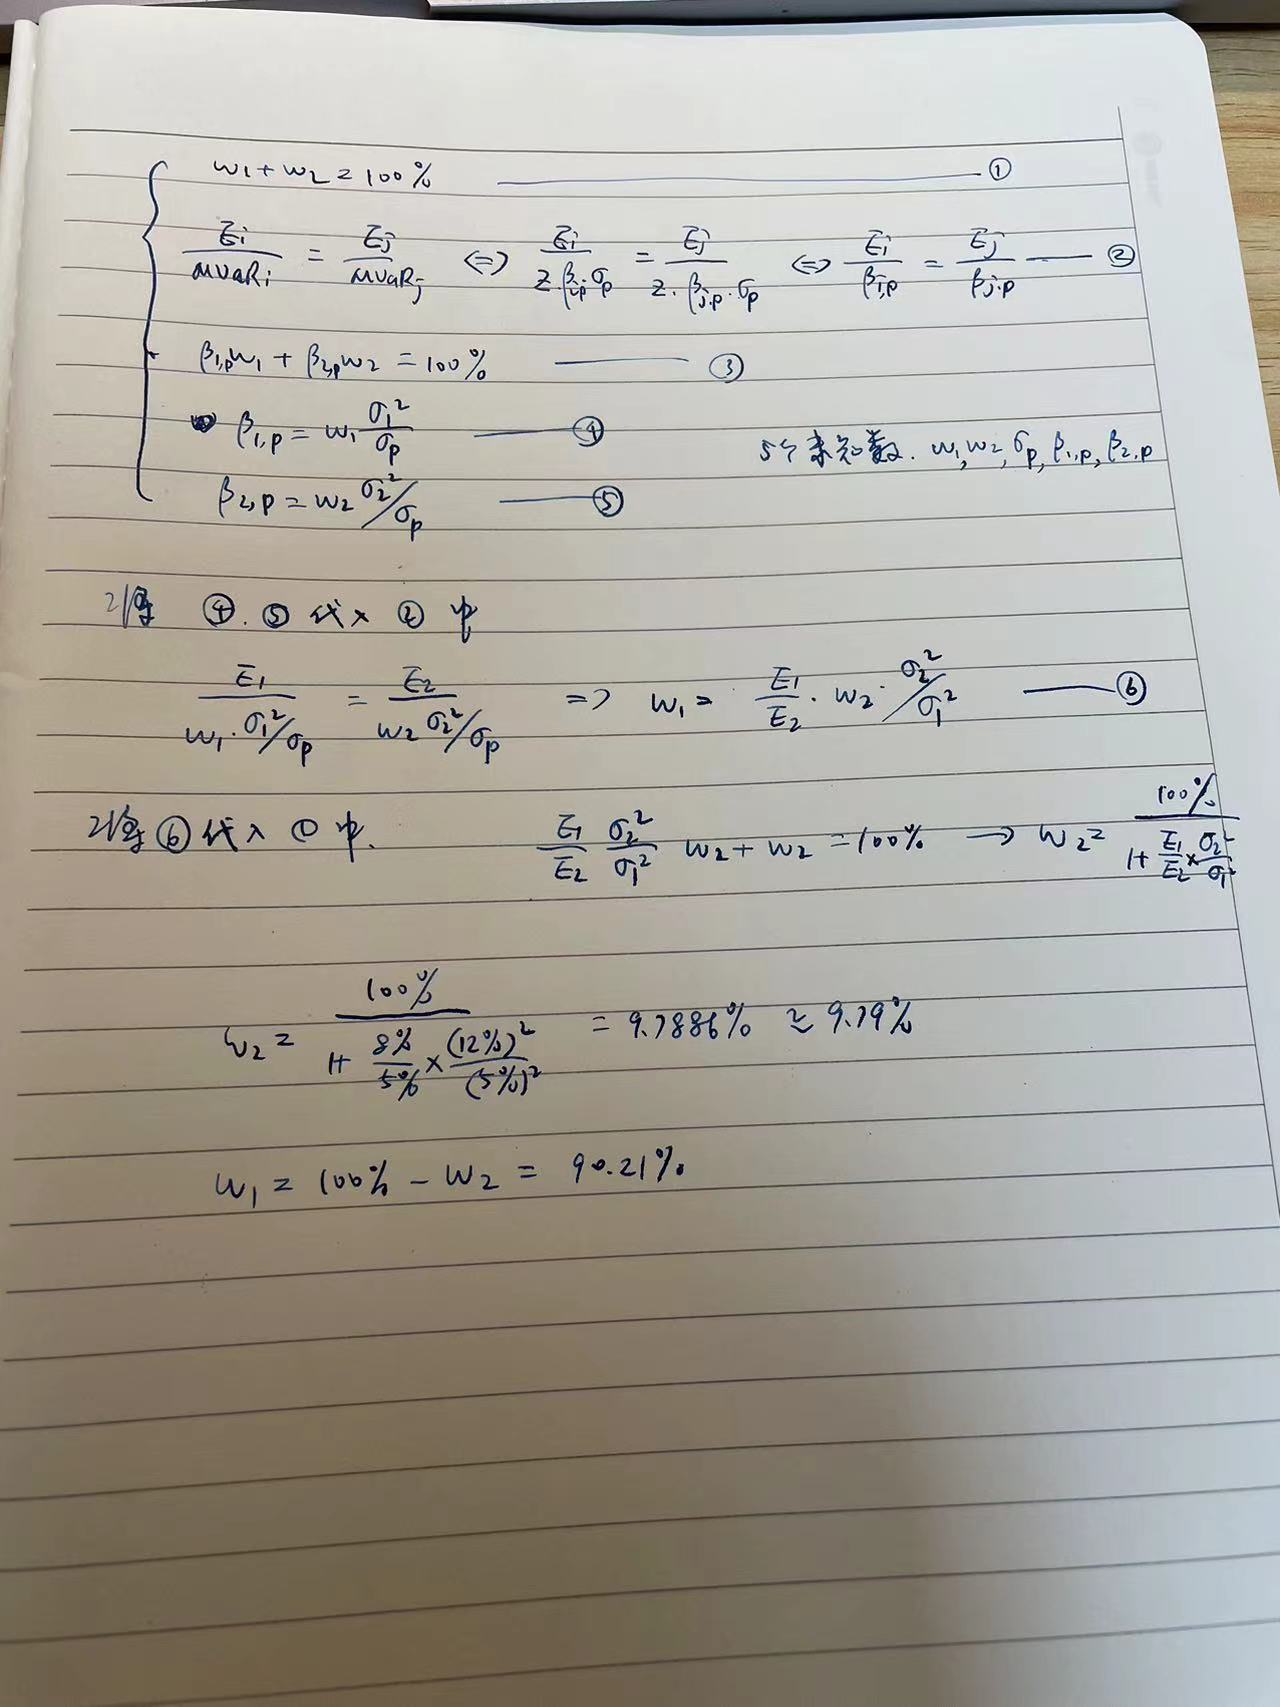 w₁+w₂=100% ——— ①
Ei/MVaRi = Ej/MVaRj ⟺ Ei/(z·βi,p·σp) = Ej/(z·βj,p·σp) ⟺ Ei/βi,p = Ej/βj,p —— ②
β₁,pw₁ + β₂,pw₂ = 100% —— ③
β₁,p = w₁ σ₁²/σp —— ④
5个未知数. w₁,w₂,σp,β₁,p,β₂,p
β₂,p = w₂ σ₂²/σp —— ⑤
将 ④.⑤ 代入 ② 中
E₁/(w₁·σ₁²/σp) = E₂/(w₂σ₂²/σp) => w₁ = E₁/E₂ · w₂ · σ₂²/σ₁² —— ⑥
将⑥代入①中. E₁/E₂ σ₂²/σ₁² w₂ + w₂ = 100% → w₂ = 100%/(1+E₁/E₂×σ₂²/σ₁²)
w₂ = 100%/(1+8%/5%×(12%)²/(5%)²) = 9.7886% ≈ 9.79%
w₁ = 100% - w₂ = 90.21%.